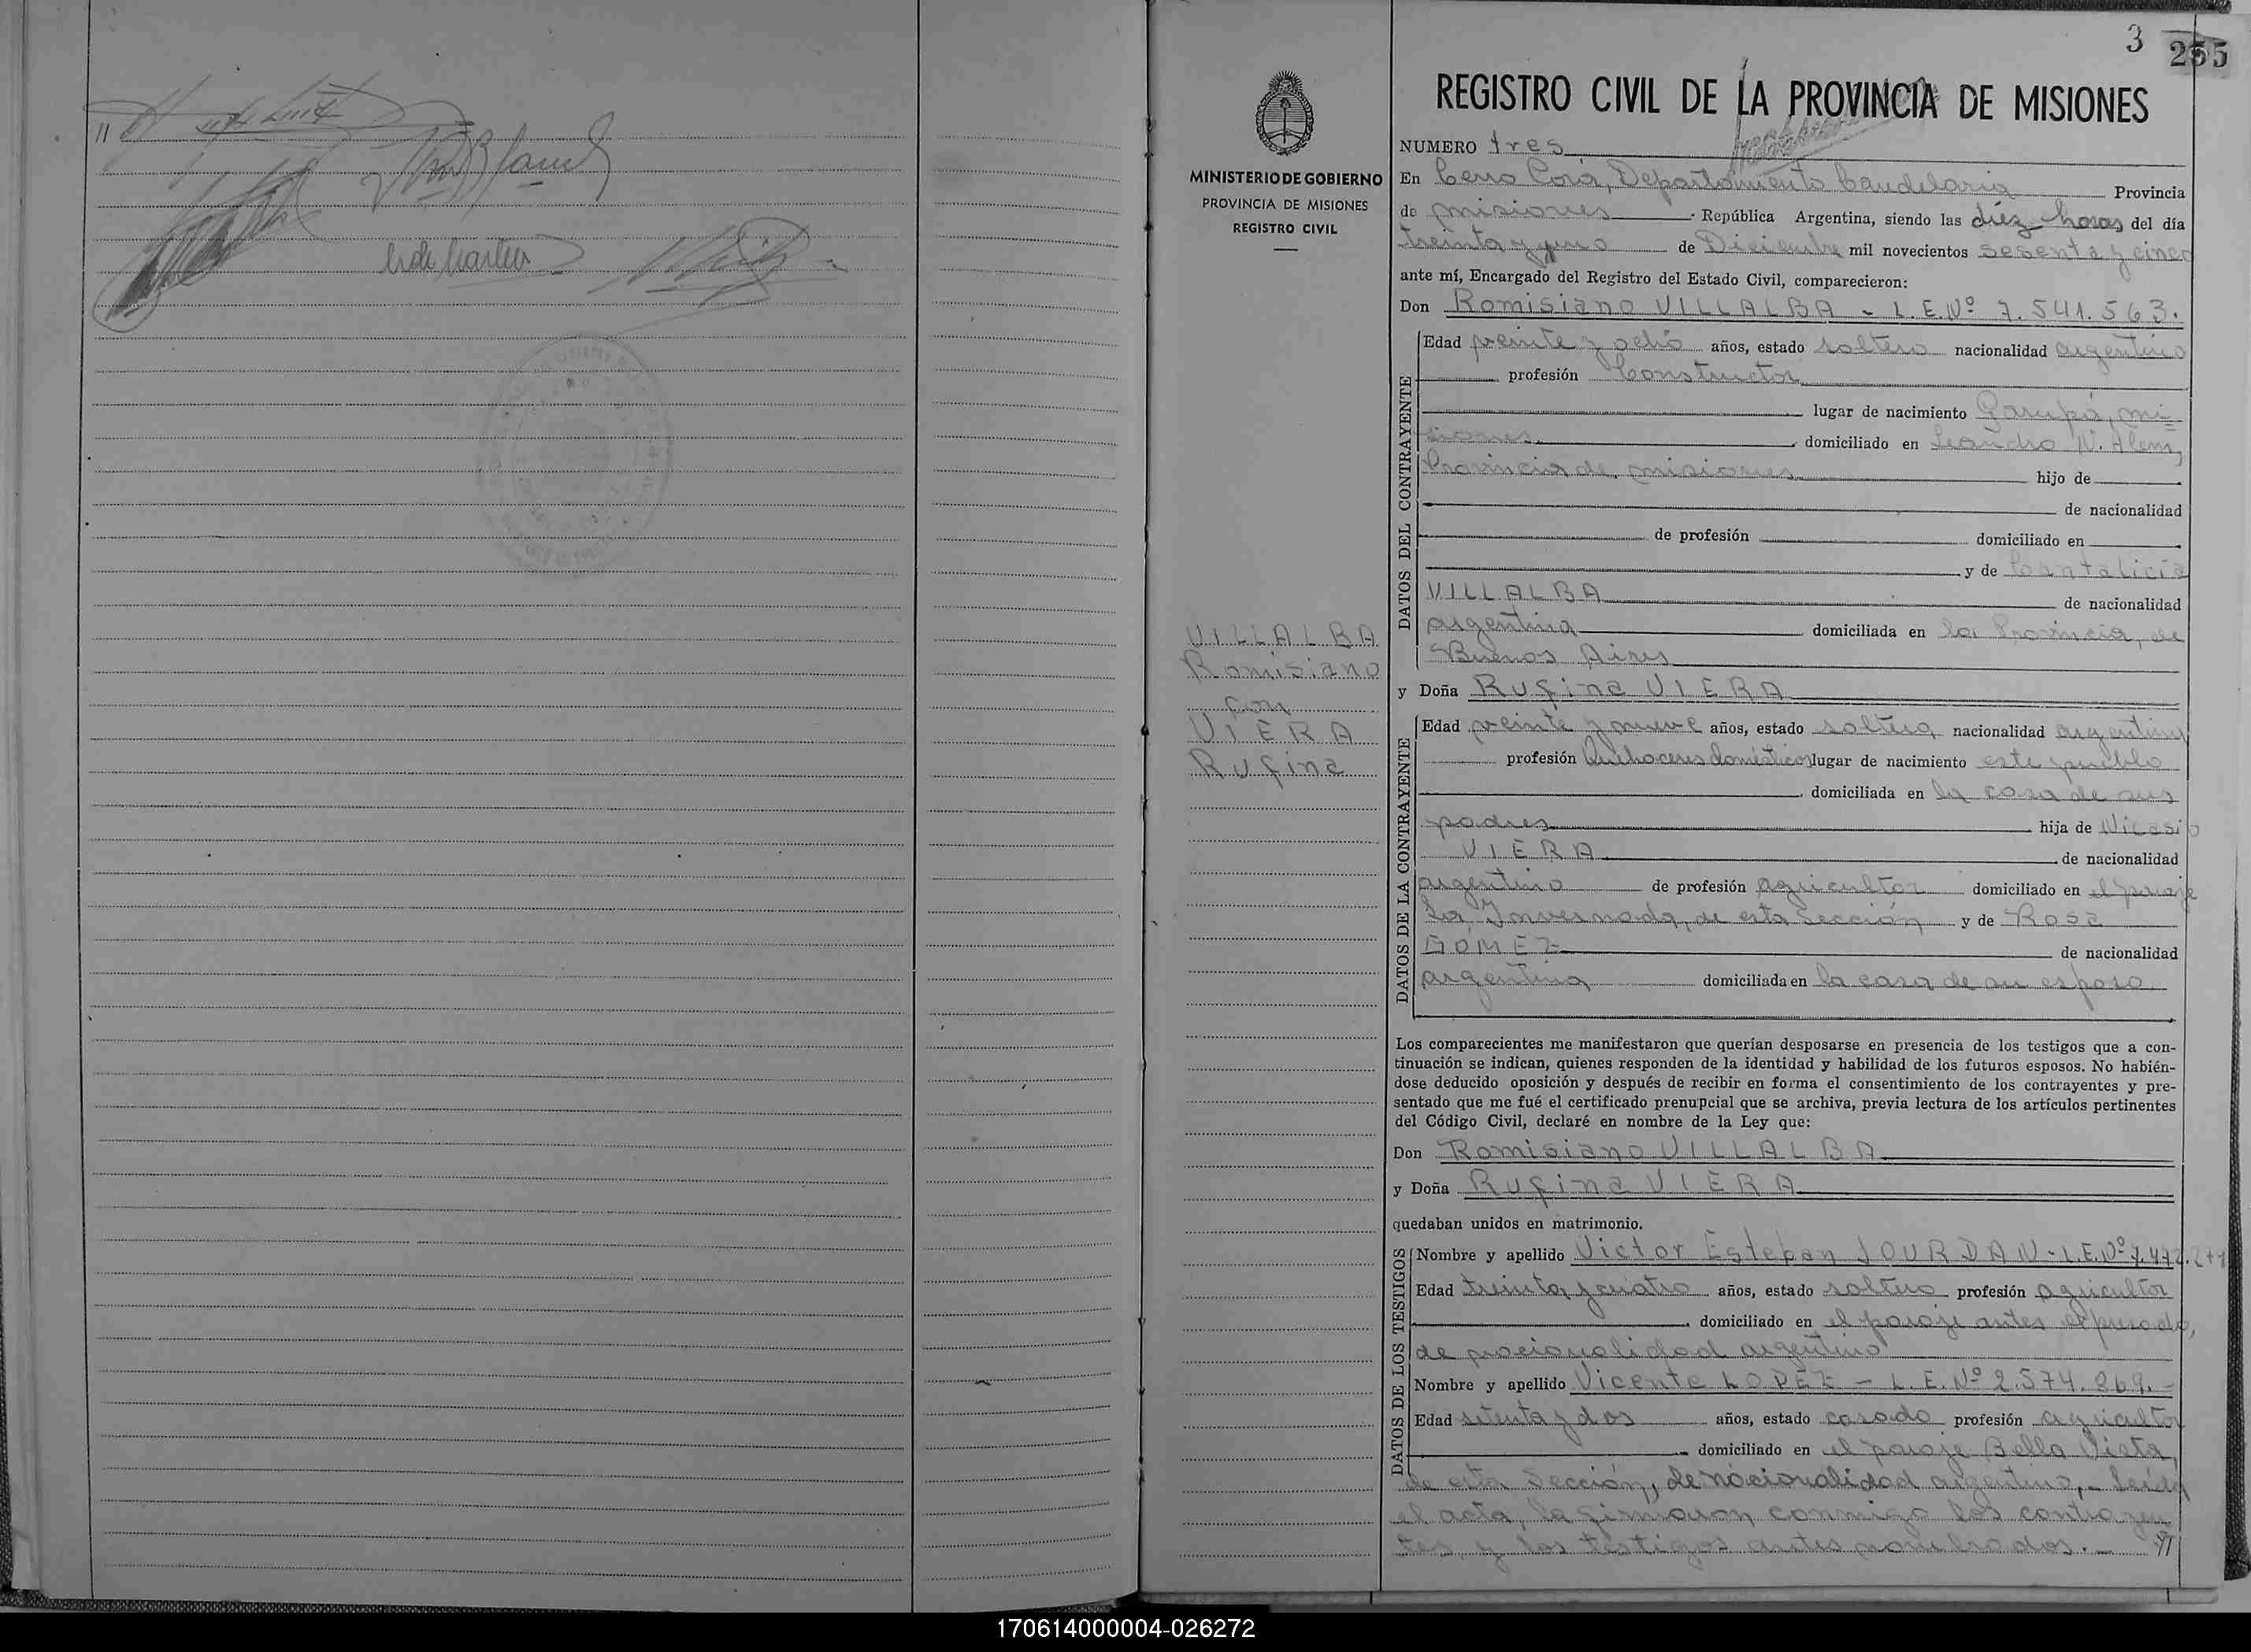 3 255
REGISTRO CIVIL DE LA PROVINCIA DE MISIONES
MINISTERIO DE GOBIERNO
PROVINCIA DE MISIONES
REGISTRO CIVIL
NUMERO tres
En Cerro Corá, Departamiento Candelaria Provincia
de misiones República Argentina, siendo las diéz horas del día
treinta y uno de Diciembre mil novecientos sesenta y cinco
ante mí, Encargado del Registro del Estado Civil, comparecieron:
Don Romisiano VILLALBA - L.E.Nº 7.541.563.
DATOS DEL CONTRAYENTE
Edad veinte y ocho años, estado soltero nacionalidad argentino
profesión Constructor
lugar de nacimiento Garupá, mi=
siones domiciliado en Leandro N. Alem,
Provincia de misiones hijo de
de nacionalidad
de profesión domiciliado en
y de Cantalicia
VILLALBA de nacionalidad
argentina domiciliada en la Provincia, de
Buenos Aires
VILLALBA
Romisiano
con
VIERA
Rufina
y Doña Rufina VIERA
DATOS DE LA CONTRAYENTE
Edad veinte y nueve años, estado soltera nacionalidad argentina
profesión Quehaceres domésticos lugar de nacimiento este pueblo
domiciliada en la casa de sus
padres hija de Nicasio
VIERA de nacionalidad
argentino de profesión agricultor domiciliado en el paraje
La Invernada, de esta Sección y de Rosa
GOMEZ de nacionalidad
argentina domiciliada en la casa de su esposo
Los comparecientes me manifestaron que querían desposarse en presencia de los testigos que a con-
tinuación se indican, quienes responden de la identidad y habilidad de los futuros esposos. No habién-
dose deducido oposición y después de recibir en forma el consentimiento de los contrayentes y pre-
sentado que me fué el certificado prenupcial que se archiva, previa lectura de los artículos pertinentes
del Código Civil, declaré en nombre de la Ley que:
Don Romisiano VILLALBA
y Doña Rufina VIERA
quedaban unidos en matrimonio.
DATOS DE LOS TESTIGOS
Nombre y apellido Victor Esteban JOURDAN - L.E.Nº
Edad treinta y cuatro años, estado soltero profesión agricultor
domiciliado en el paraje antes expresado,
de nacionalidad argentino
Nombre y apellido Vicente LOPEZ - L.E.Nº 2.574.869.-
Edad setenta y dos años, estado casado profesión agricultor
domiciliado en el paraje Bella Vista,
de esta Sección, de nacionalidad argentino,- Leída
el acta, la firmaron conmigo los contrayen
tes, y los testigos antes nombrados.- //
170614000004-026272